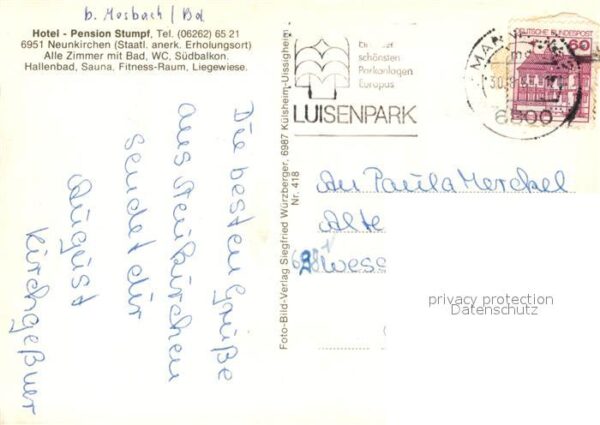 b. Mosbach/Bd
Hotel - Pension Stumpf, Tel. (06262) 65 21
6951 Neunkirchen (Staatl. anerk. Erholungsort)
Alle Zimmer mit Bad, WC, Südbalkon.
Hallenbad, Sauna, Fitness-Raum, Liegewiese.
Die besten Grüße
aus Neukirchen
sendet dir
August
Kirchgeßner
Foto-Bild-Verlag Siegfried Würzberger, 6987 Külsheim-Uissigheim
Nr. 418
Eine der
schönsten
Parkanlagen
Europas
LUISENPARK
MANN
6800
DEUTSCHE BUNDESPOST
60
An Paula Merckel
Alte
6981 Wess
privacy protection
Datenschutz